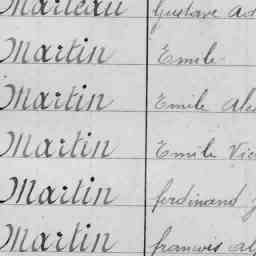 Marteau Gustave
Martin Emile
Martin Emile
Martin Emile
Martin ferdinand
Martin francois